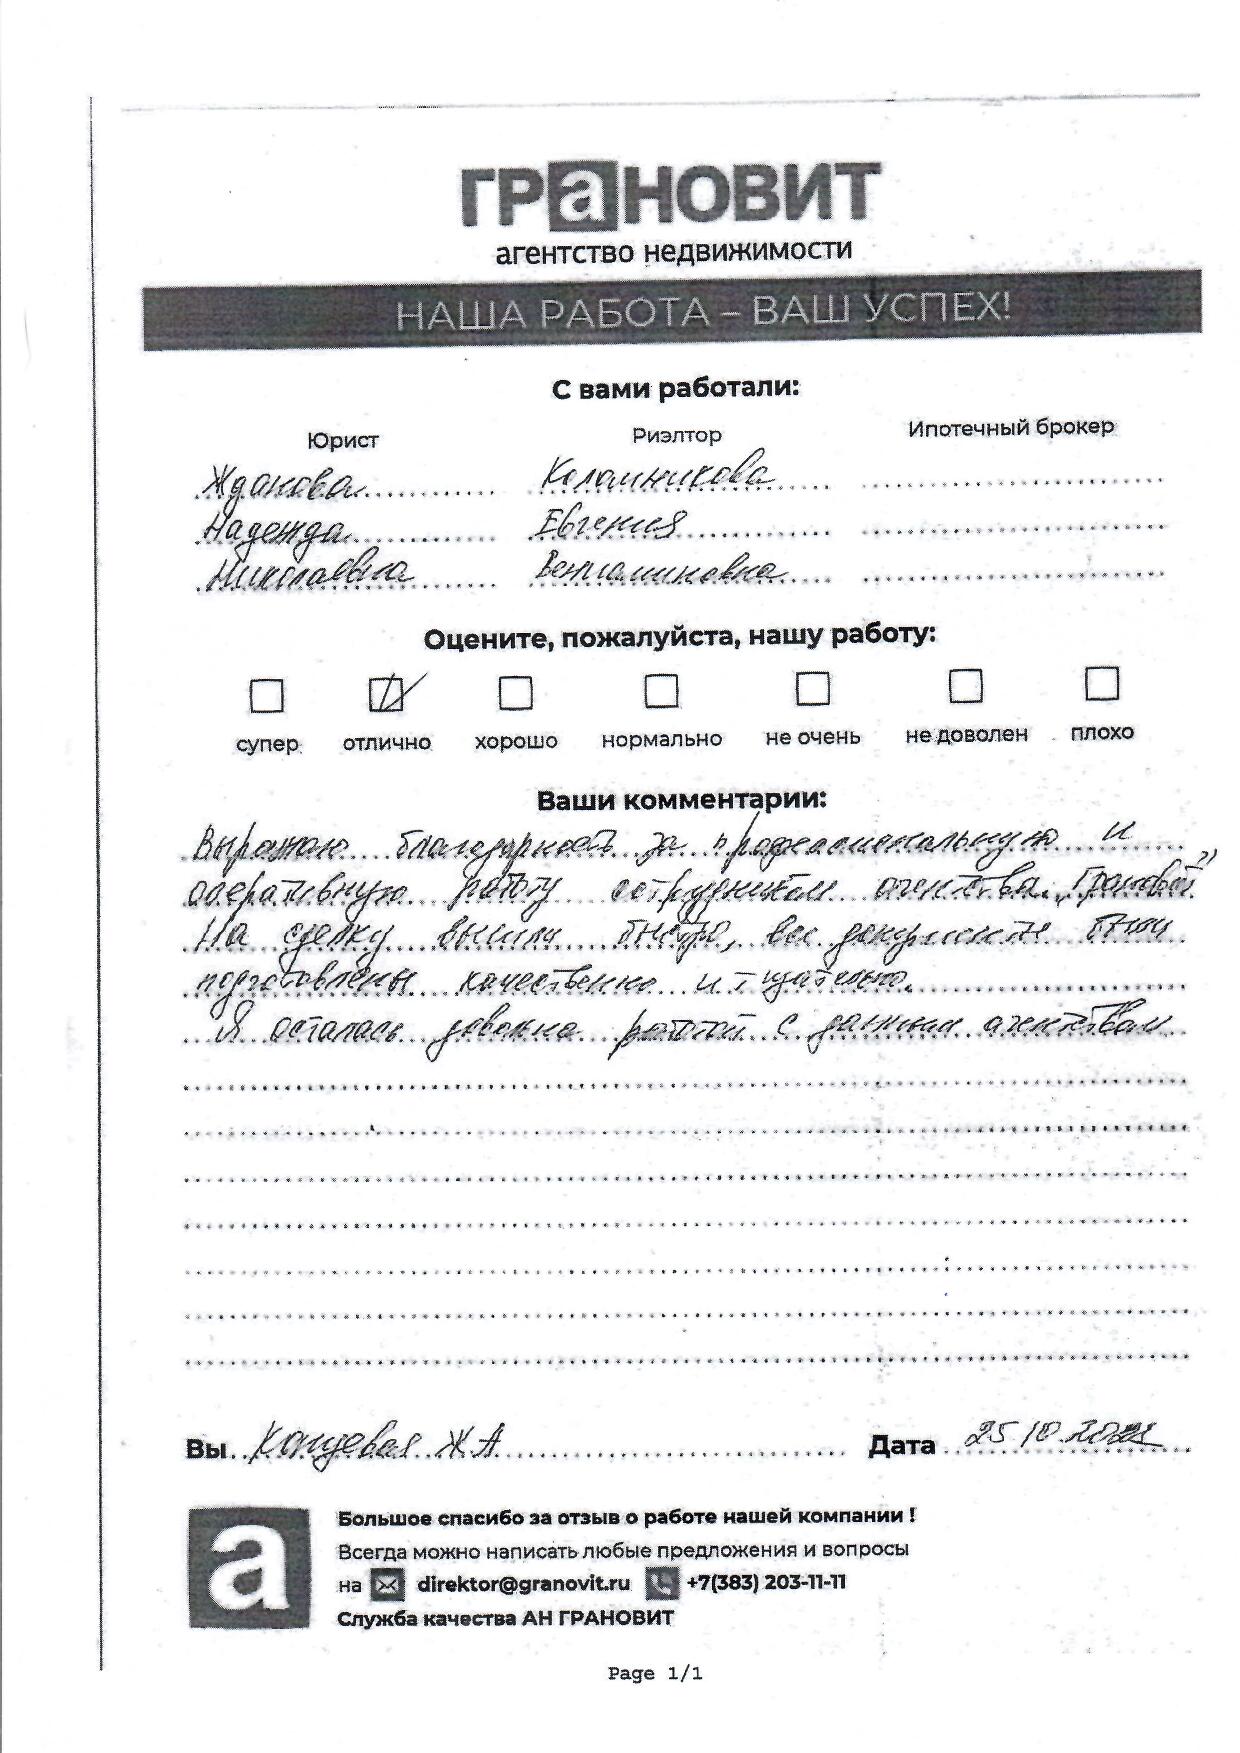 ГРаНОВИТ
агентство недвижимости
НАША РАБОТА – ВАШ УСПЕХ!
С вами работали:
Юрист Риэлтор Ипотечный брокер
Жданова Коломникова
Надежда Евгения
Николаевна Вениаминовна
Оцените, пожалуйста, нашу работу:
супер отлично хорошо нормально не очень не доволен плохо
Ваши комментарии:
Выражаю благодарность за профессиональную и
оперативную работу сотрудникам агентства
На сделку вышли быстро, все документы были
подготовлены качественно и тщательно.
Я осталась довольна работой с данным агентством
Вы Концевая Ж А Дата 25 10
Большое спасибо за отзыв о работе нашей компании !
Всегда можно написать любые предложения и вопросы
на direktor@granovit.ru +7(383) 203-11-11
Служба качества АН ГРАНОВИТ
а
Page 1/1